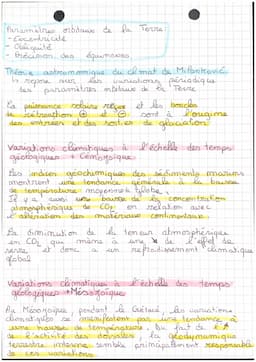 Paramètres orbitaux de la Terre:
- Excentricité
- Obliquité
- Précession des équinoxes
Théorie astronomique du climat de Milankovic
↳ repose sur les variations périodique
des paramètres orbitaux de la Terre
La puissance solaire reçue et les boucles
de rétroaction ⊕ et ⊖ sont à l'origine
des entrées et des sorties de glaciation
Variations climatiques à l'échelle des temps
géologiques → Cénozoïque
Des indices géochimiques des sédiments marins
montrent une tendance générale à la baisse
de température moyenne du globe.
Il y a aussi une baisse de la concentration
atmosphérique de CO₂ en relation avec
l'altération des matériaux continentaux
La diminution de la teneur atmosphérique
en CO₂ qui mène à une ↘ de l'effet de
serre et donc à un refroidissement climatique
global
Variations climatiques à l'échelle des temps
géologiques → Mésozoïque
Au Mésozoïque, pendant le Crétacé, les variations
climatiques se manifestent par une tendance à
une hausse de température. Du fait de l'↗
de l'activité des dorsales, la géodynamique
terrestre interne semble principalement responsable
de ces variations